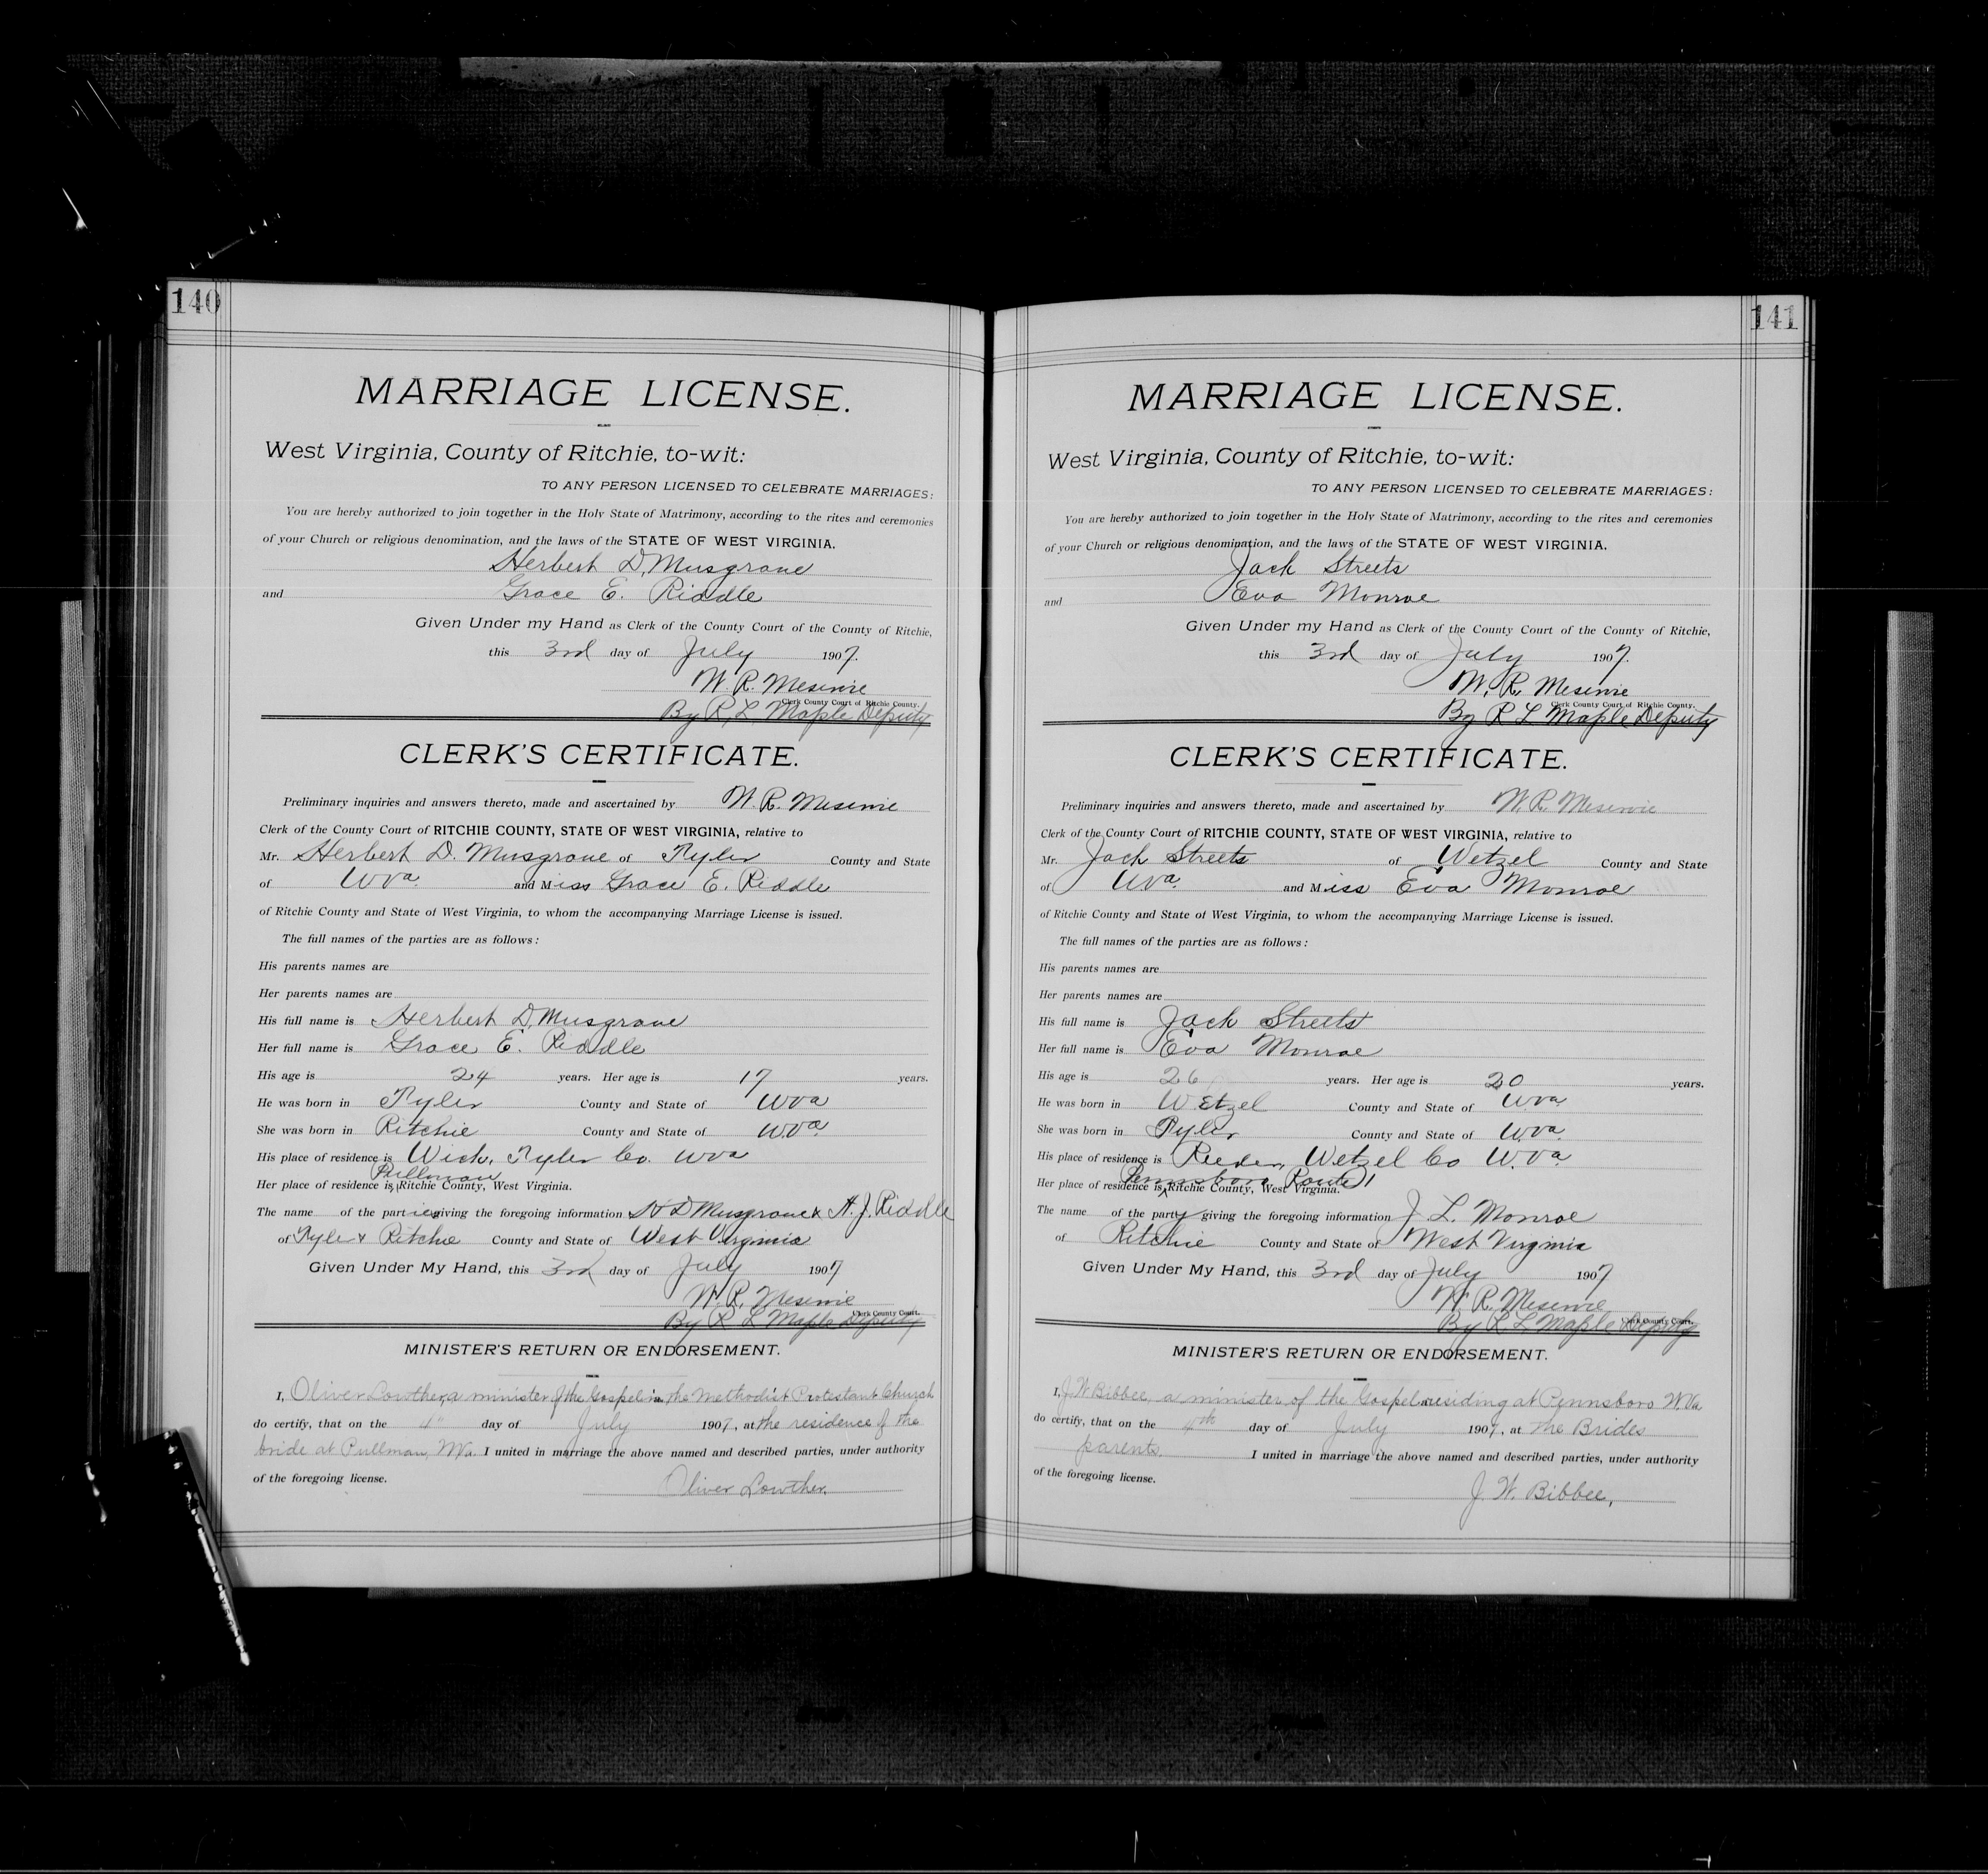 140
MARRIAGE LICENSE.
West Virginia, County of Ritchie, to-wit:
TO ANY PERSON LICENSED TO CELEBRATE MARRIAGES:
You are hereby authorized to join together in the Holy State of Matrimony, according to the rites and ceremonies
of your Church or religious denomination, and the laws of the STATE OF WEST VIRGINIA.
Herbert D. Musgrave
and Grace E. Riddle
Given Under my Hand as Clerk of the County Court of the County of Ritchie,
this 3rd day of July 1907.
W. R. Meservie
Clerk County Court of Ritchie County.
By R. L. Maple Deputy
CLERK'S CERTIFICATE.
Preliminary inquiries and answers thereto, made and ascertained by W. R. Meservie
Clerk of the County Court of RITCHIE COUNTY, STATE OF WEST VIRGINIA, relative to
Mr. Herbert D. Musgrave of Tyler County and State
of Wva. and Miss Grace E. Riddle
of Ritchie County and State of West Virginia, to whom the accompanying Marriage License is issued.
The full names of the parties are as follows:
His parents names are
Her parents names are
His full name is Herbert D. Musgrave
Her full name is Grace E. Riddle
His age is 24 years. Her age is 17 years.
He was born in Tyler County and State of Wva
She was born in Ritchie County and State of W.Va.
His place of residence is Wick, Tyler Co. Wva
Pullman
Her place of residence is Ritchie County, West Virginia.
The name of the parties giving the foregoing information H D Musgrave & A. J. Riddle
of Tyler & Ritchie County and State of West Virginia
Given Under My Hand, this 3rd day of July 1907
W. R. Meservie
Clerk County Court.
By R L Maple Deputy
MINISTER'S RETURN OR ENDORSEMENT.
I, Oliver Lowther, a minister of the Gospel in the Methodist Protestant Church
do certify, that on the 4" day of July 1907, at the residence of the
bride at Pullman, W.Va. I united in marriage the above named and described parties, under authority
of the foregoing license.
Oliver Lowther.
141
MARRIAGE LICENSE.
West Virginia, County of Ritchie, to-wit:
TO ANY PERSON LICENSED TO CELEBRATE MARRIAGES:
You are hereby authorized to join together in the Holy State of Matrimony, according to the rites and ceremonies
of your Church or religious denomination, and the laws of the STATE OF WEST VIRGINIA.
Jack Streets
and Eva Monroe
Given Under my Hand as Clerk of the County Court of the County of Ritchie,
this 3rd day of July 1907.
W. R. Meservie
Clerk County Court of Ritchie County.
By R L Maple Deputy
CLERK'S CERTIFICATE.
Preliminary inquiries and answers thereto, made and ascertained by W. R. Meservie
Clerk of the County Court of RITCHIE COUNTY, STATE OF WEST VIRGINIA, relative to
Mr. Jack Streets of Wetzel County and State
of Wva. and Miss Eva Monroe
of Ritchie County and State of West Virginia, to whom the accompanying Marriage License is issued.
The full names of the parties are as follows:
His parents names are
Her parents names are
His full name is Jack Streets
Her full name is Eva Monroe
His age is 26 years. Her age is 20 years.
He was born in Wetzel County and State of Wva.
She was born in Tyler County and State of W.va.
His place of residence is Reeder, Wetzel Co W.Va.
Pennsboro Route 1
Her place of residence is Ritchie County, West Virginia.
The name of the party giving the foregoing information J. L. Monroe
of Ritchie County and State of West Virginia
Given Under My Hand, this 3rd day of July 1907
W. R. Meservie
Clerk County Court.
By R L Maple Deputy
MINISTER'S RETURN OR ENDORSEMENT.
I, J. W. Bibbee, a minister of the Gospel residing at Pennsboro W.Va
do certify, that on the 4th day of July 1907, at The Brides
parents. I united in marriage the above named and described parties, under authority
of the foregoing license.
J. W. Bibbee,